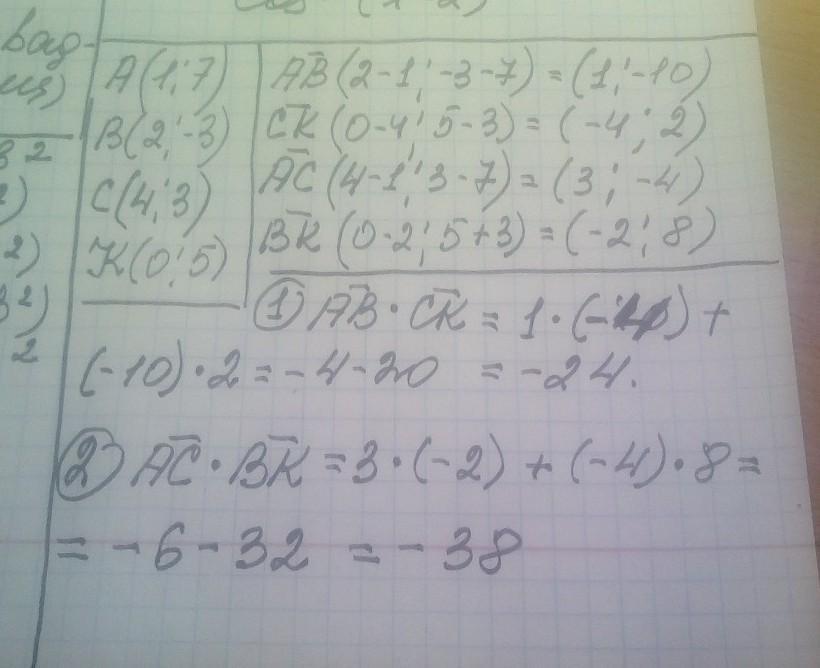 вад-
A(1; 7)
B(2; -3)
C(4; 3)
K(0; 5)
AB(2-1; -3-7) = (1; -10)
CK(0-4; 5-3) = (-4; 2)
AC(4-1; 3-7) = (3; -4)
BK(0-2; 5+3) = (-2; 8)
1) AB · CK = 1 · (-4) +
(-10) · 2 = -4 - 20 = -24.
2) AC · BK = 3 · (-2) + (-4) · 8 =
= -6 - 32 = -38